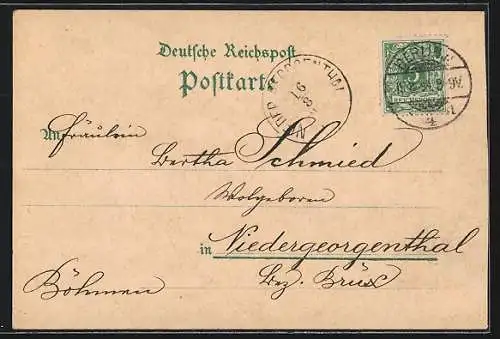 Deutsche Reichspost
Postkarte
An Fräulein
Bertha Schmied
Wolgeboren
in Niedergeorgenthal
Bez. Brüx
Böhmen